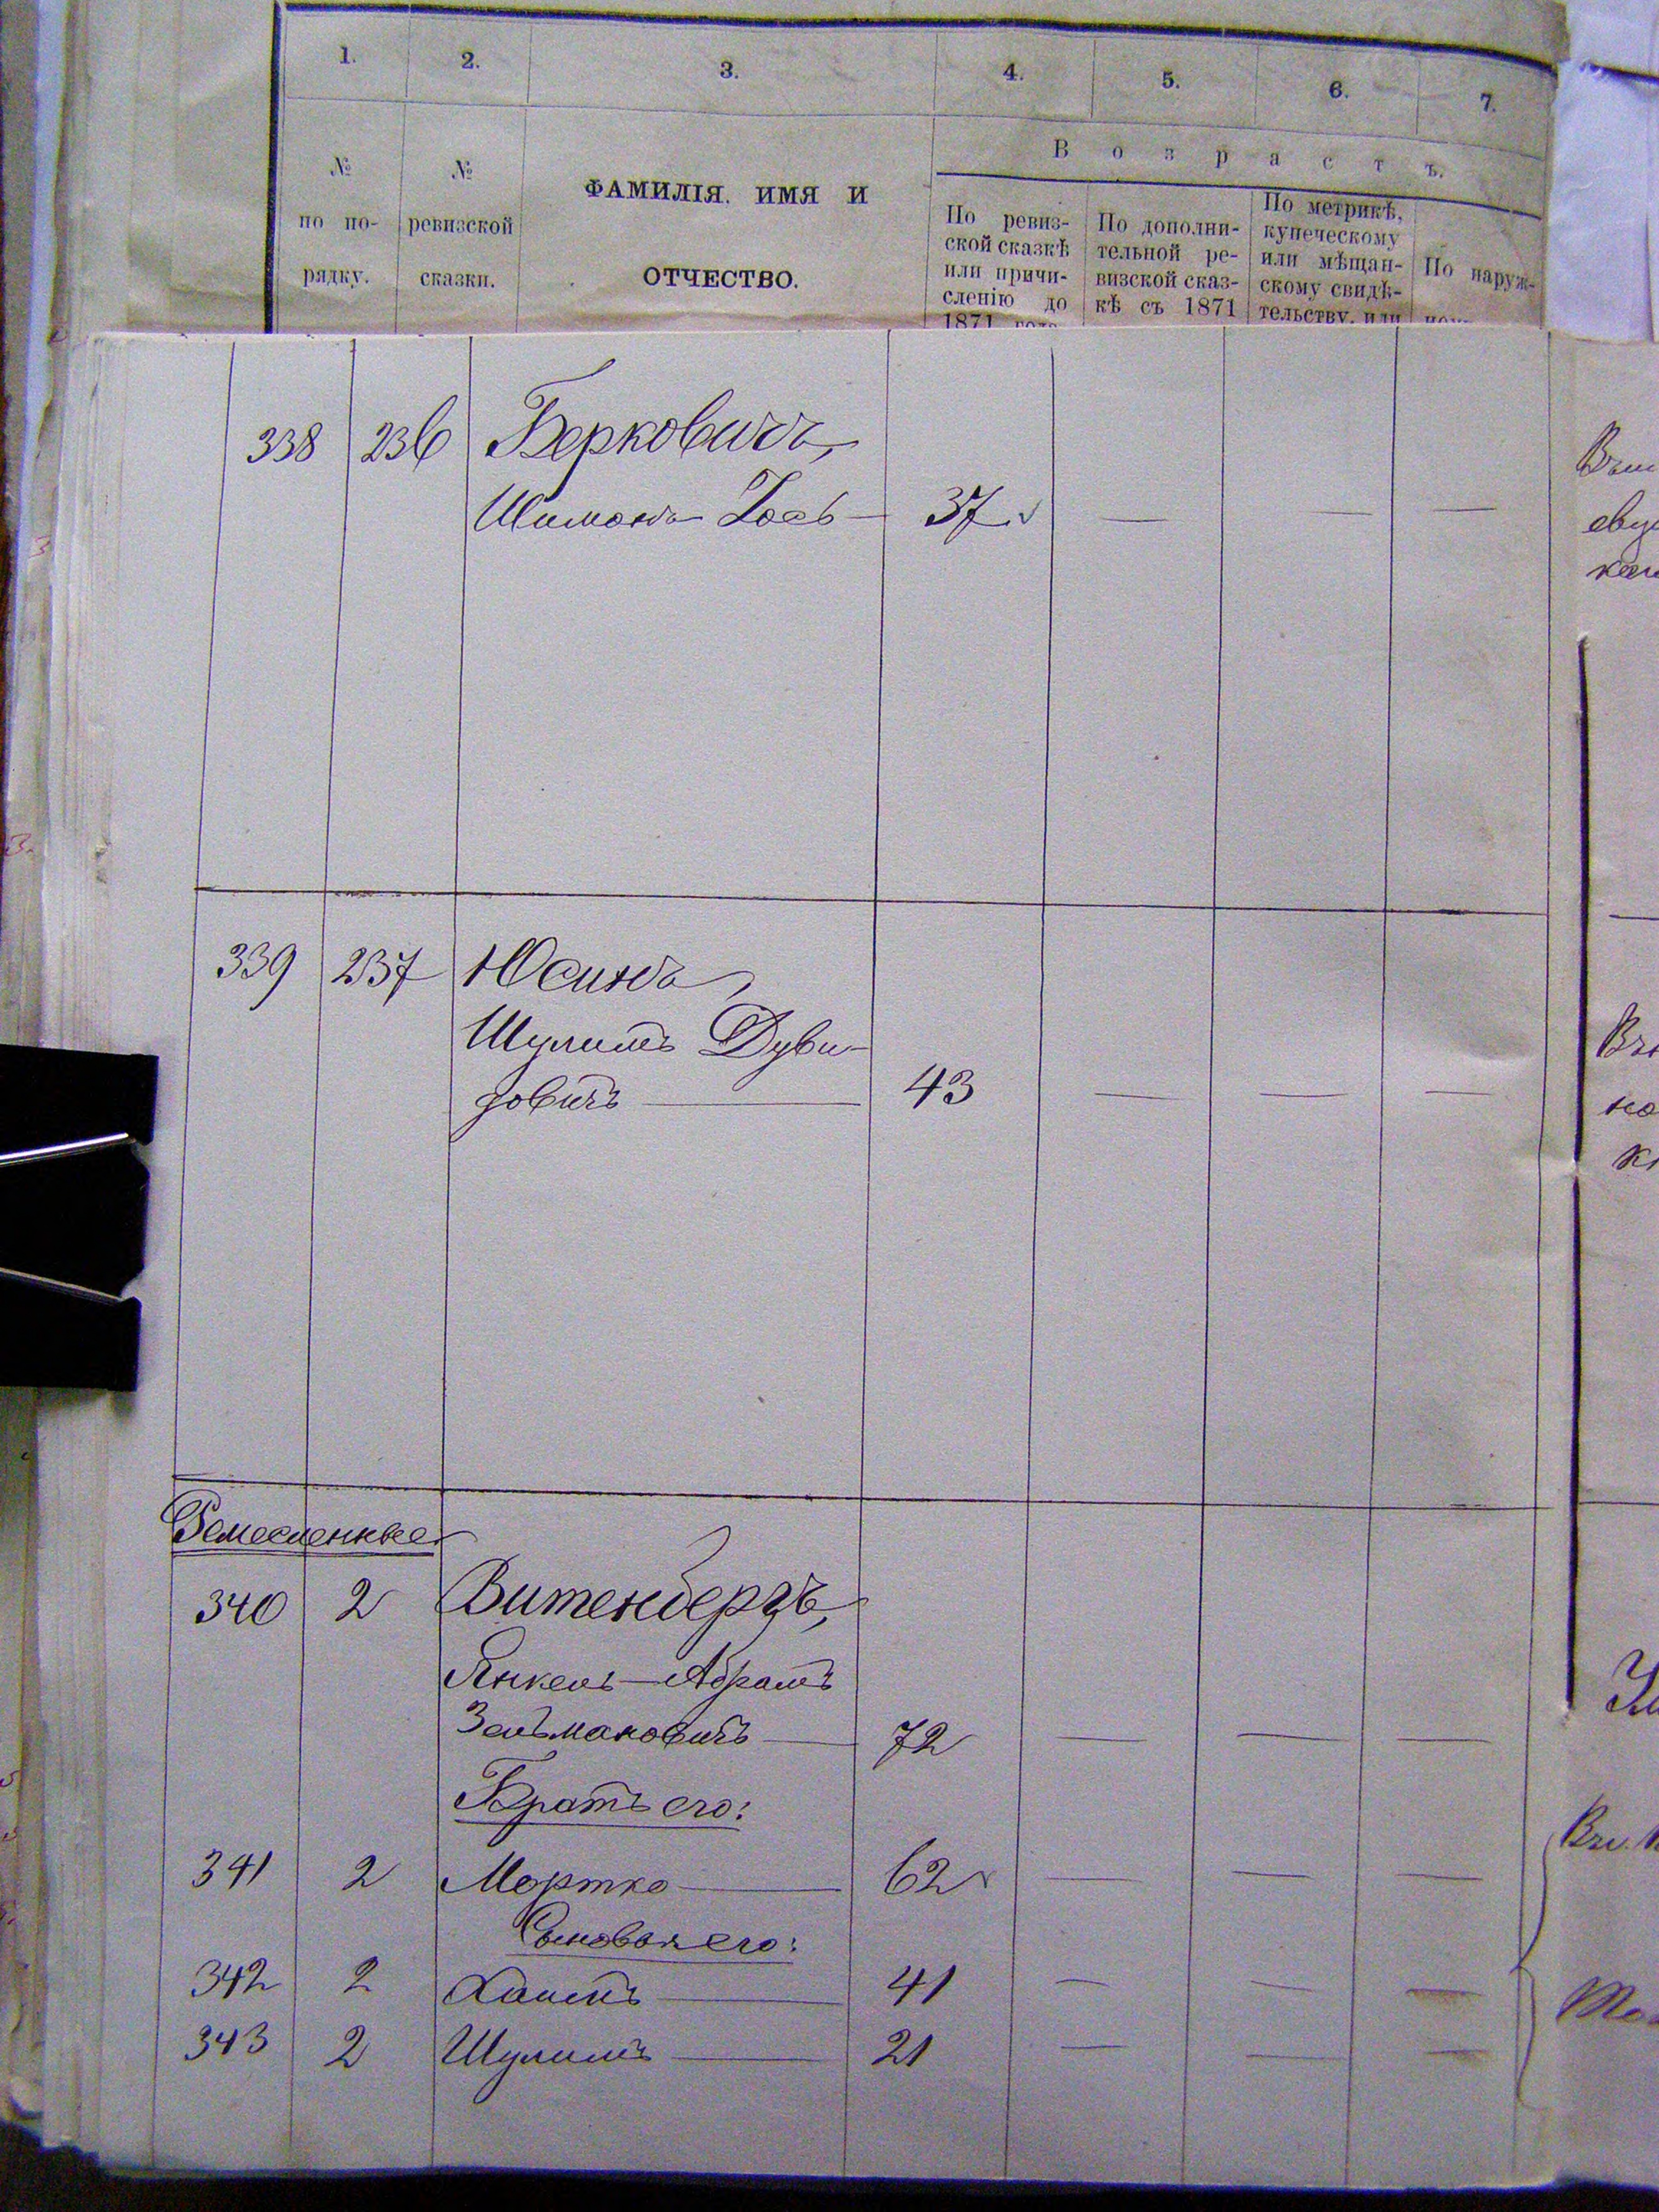 1. 2. 3. 4. 5. 6. 7.
В о з р а с т ъ.
№ по по-рядку.
№ ревизской сказки.
ФАМИЛІЯ. ИМЯ И
ОТЧЕСТВО.
По ревиз-
ской сказкѣ
или причи-
сленію до
1871 года
По дополни-
тельной ре-
визской сказ-
кѣ съ 1871
По метрикѣ,
купеческому
или мѣщан-
скому свидѣ-
тельству, или
По наруж-
338 236 Берковичъ,
Шимонъ 37
339 237 Юсинъ,
Шулимъ Дуви-
довичъ — 43 — — —
Ремесленные
340 2 Витенбергъ,
Янкель-Абрамъ
Зельмановичъ — 72 — — —
Братъ его:
341 2 Мортко — 62 — — —
Сыновья его:
342 2 Хаимъ — 41 — — —
343 2 Шулимъ — 21 — — —